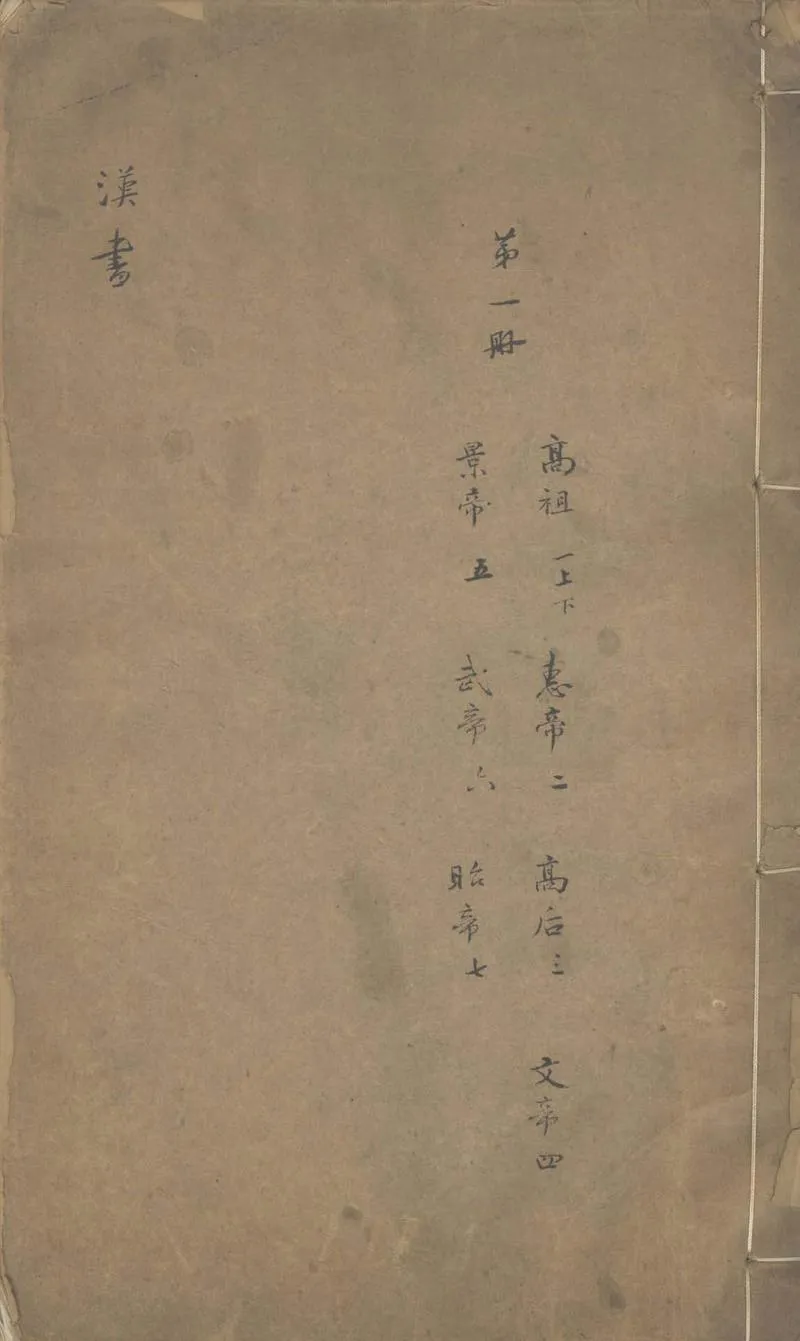 第一册
高祖 一上下 惠帝 二 高后 三 文帝 四
景帝 五 武帝 六 昭帝 七
漢書